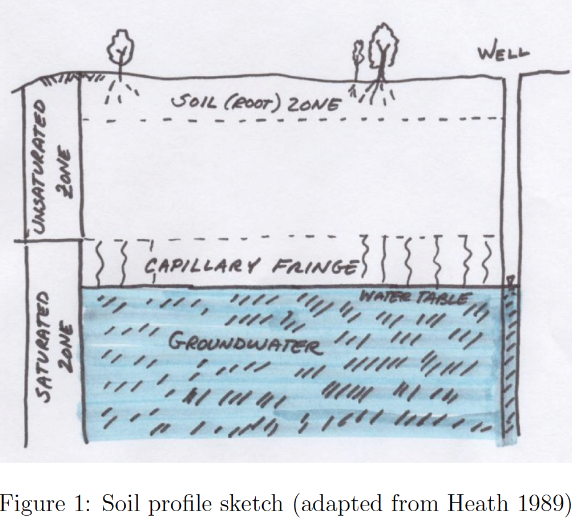 WELL
SOIL (ROOT) ZONE
UNSATURATED
ZONE
CAPILLARY FRINGE
WATER TABLE
GROUNDWATER
SATURATED
ZONE
Figure 1: Soil profile sketch (adapted from Heath 1989)